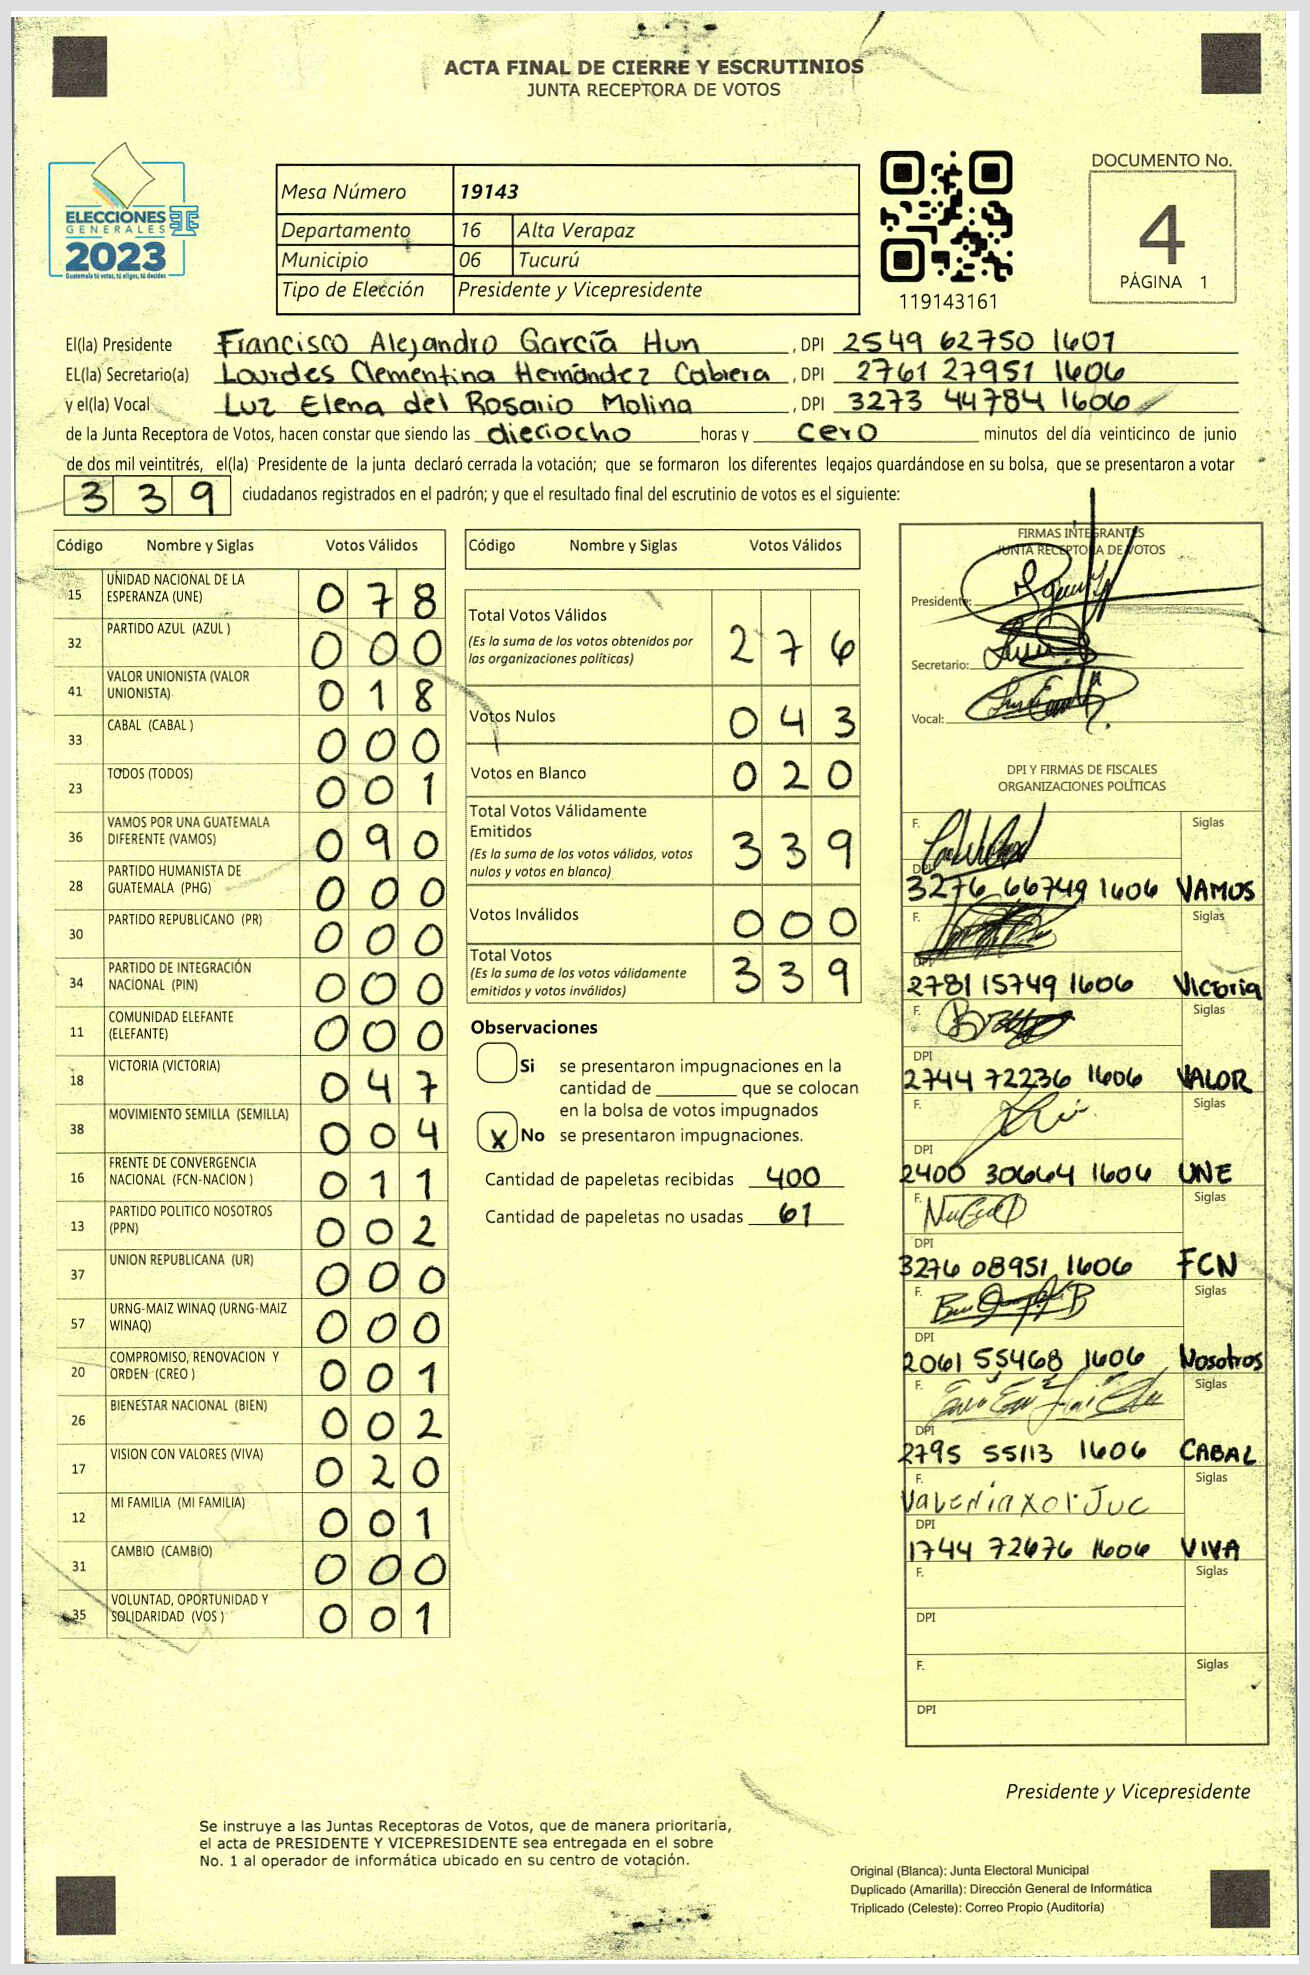 ACTA FINAL DE CIERRE Y ESCRUTINIOS
JUNTA RECEPTORA DE VOTOS
ELECCIONES
GENERALES
2023
Guatemala tú votas, tú eliges, tú decides
Mesa Número 19143
Departamento 16 Alta Verapaz
Municipio 06 Tucurú
Tipo de Elección Presidente y Vicepresidente
119143161
DOCUMENTO No.
4
PÁGINA 1
El(la) Presidente Francisco Alejandro García Hun , DPI 2549 62750 1601
EL(la) Secretario(a) Lourdes Clementina Hernández Cabrera , DPI 2761 27951 1606
y el(la) Vocal Luz Elena del Rosario Molina , DPI 3273 44784 1606
de la Junta Receptora de Votos, hacen constar que siendo las dieciocho horas y cero minutos del día veinticinco de junio
de dos mil veintitrés, el(la) Presidente de la junta declaró cerrada la votación; que se formaron los diferentes legajos guardándose en su bolsa, que se presentaron a votar
339 ciudadanos registrados en el padrón; y que el resultado final del escrutinio de votos es el siguiente:
Código Nombre y Siglas Votos Válidos
15 UNIDAD NACIONAL DE LA ESPERANZA (UNE) 078
32 PARTIDO AZUL (AZUL ) 000
41 VALOR UNIONISTA (VALOR UNIONISTA) 018
33 CABAL (CABAL ) 000
23 TODOS (TODOS) 001
36 VAMOS POR UNA GUATEMALA DIFERENTE (VAMOS) 090
28 PARTIDO HUMANISTA DE GUATEMALA (PHG) 000
30 PARTIDO REPUBLICANO (PR) 000
34 PARTIDO DE INTEGRACIÓN NACIONAL (PIN) 000
11 COMUNIDAD ELEFANTE (ELEFANTE) 000
18 VICTORIA (VICTORIA) 047
38 MOVIMIENTO SEMILLA (SEMILLA) 004
16 FRENTE DE CONVERGENCIA NACIONAL (FCN-NACION ) 011
13 PARTIDO POLITICO NOSOTROS (PPN) 002
37 UNION REPUBLICANA (UR) 000
57 URNG-MAIZ WINAQ (URNG-MAIZ WINAQ) 000
20 COMPROMISO, RENOVACION Y ORDEN (CREO ) 001
26 BIENESTAR NACIONAL (BIEN) 002
17 VISION CON VALORES (VIVA) 020
12 MI FAMILIA (MI FAMILIA) 001
31 CAMBIO (CAMBIO) 000
35 VOLUNTAD, OPORTUNIDAD Y SOLIDARIDAD (VOS ) 001
Código Nombre y Siglas Votos Válidos
Total Votos Válidos 276
(Es la suma de los votos obtenidos por
las organizaciones políticas)
Votos Nulos 043
Votos en Blanco 020
Total Votos Válidamente
Emitidos 339
(Es la suma de los votos válidos, votos
nulos y votos en blanco)
Votos Inválidos 000
Total Votos 339
(Es la suma de los votos válidamente
emitidos y votos inválidos)
Observaciones
Si se presentaron impugnaciones en la
cantidad de ________ que se colocan
en la bolsa de votos impugnados
x No se presentaron impugnaciones.
Cantidad de papeletas recibidas 400
Cantidad de papeletas no usadas 61
FIRMAS INTEGRANTES
JUNTA RECEPTORA DE VOTOS
Presidente:
Secretario:
Vocal:
DPI Y FIRMAS DE FISCALES
ORGANIZACIONES POLÍTICAS
F. Siglas
DPI
3276 66749 1606 VAMOS
F. Siglas
DPI
2781 15749 1606 Victoria
F. Siglas
DPI
2744 72236 1606 VALOR
F. Siglas
DPI
2400 30664 1606 UNE
F. Siglas
DPI
3276 08951 1606 FCN
F. Siglas
DPI
2061 55468 1606 Nosotros
F. Siglas
DPI
2795 55113 1606 CABAL
F. Siglas
Valeria Xol Juc
DPI
1744 72676 1606 VIVA
F. Siglas
DPI
F. Siglas
DPI
Presidente y Vicepresidente
Se instruye a las Juntas Receptoras de Votos, que de manera prioritaria,
el acta de PRESIDENTE Y VICEPRESIDENTE sea entregada en el sobre
No. 1 al operador de informática ubicado en su centro de votación.
Original (Blanca): Junta Electoral Municipal
Duplicado (Amarilla): Dirección General de Informática
Triplicado (Celeste): Correo Propio (Auditoria)